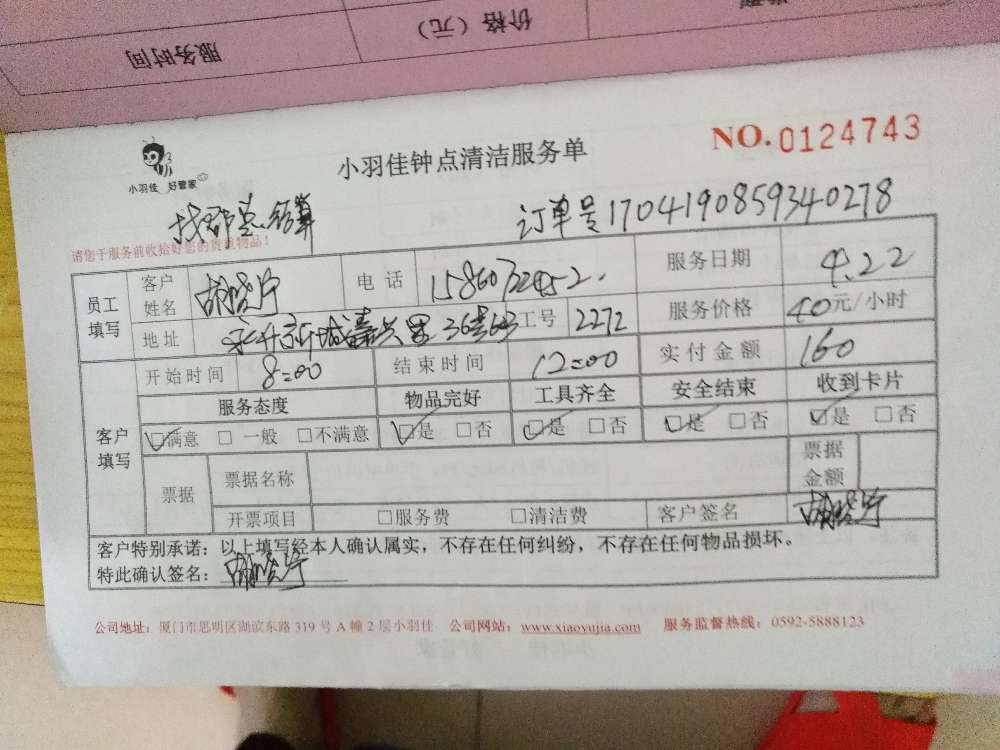 价格（元）
服务时间
NO.0124743
小羽佳钟点清洁服务单
小羽佳 好管家
结算 订单号1704190859340278
请您于服务前收拾好您的贵重物品！
员工填写 客户姓名 胡晓宁 电话 服务日期 4.22
地址 工号 2272 服务价格 40元/小时
客户填写 开始时间 8:00 结束时间 12:00 实付金额 160
服务态度 物品完好 工具齐全 安全结束 收到卡片
☑满意 □一般 □不满意 ☑是 □否 ☑是 □否 ☑是 □否 ☑是 □否
票据 票据名称 票据金额
开票项目 □服务费 □清洁费 客户签名 胡晓宁
客户特别承诺：以上填写经本人确认属实，不存在任何纠纷，不存在任何物品损坏。
特此确认签名：胡晓宁
公司地址：厦门市思明区湖滨东路 319 号 A 幢 2 层小羽佳 公司网站：www.xiaoyujia.com 服务监督热线：0592-5888123